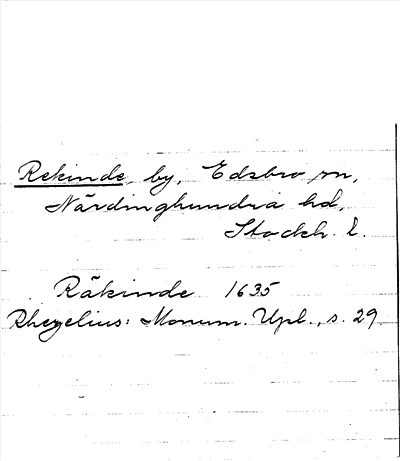 Rekinde, by, Edsbro sn,
Närdinghundra hd,
Stockh. l.
Räkinde 1635
Rhezelius: Monum. Upl., s. 29